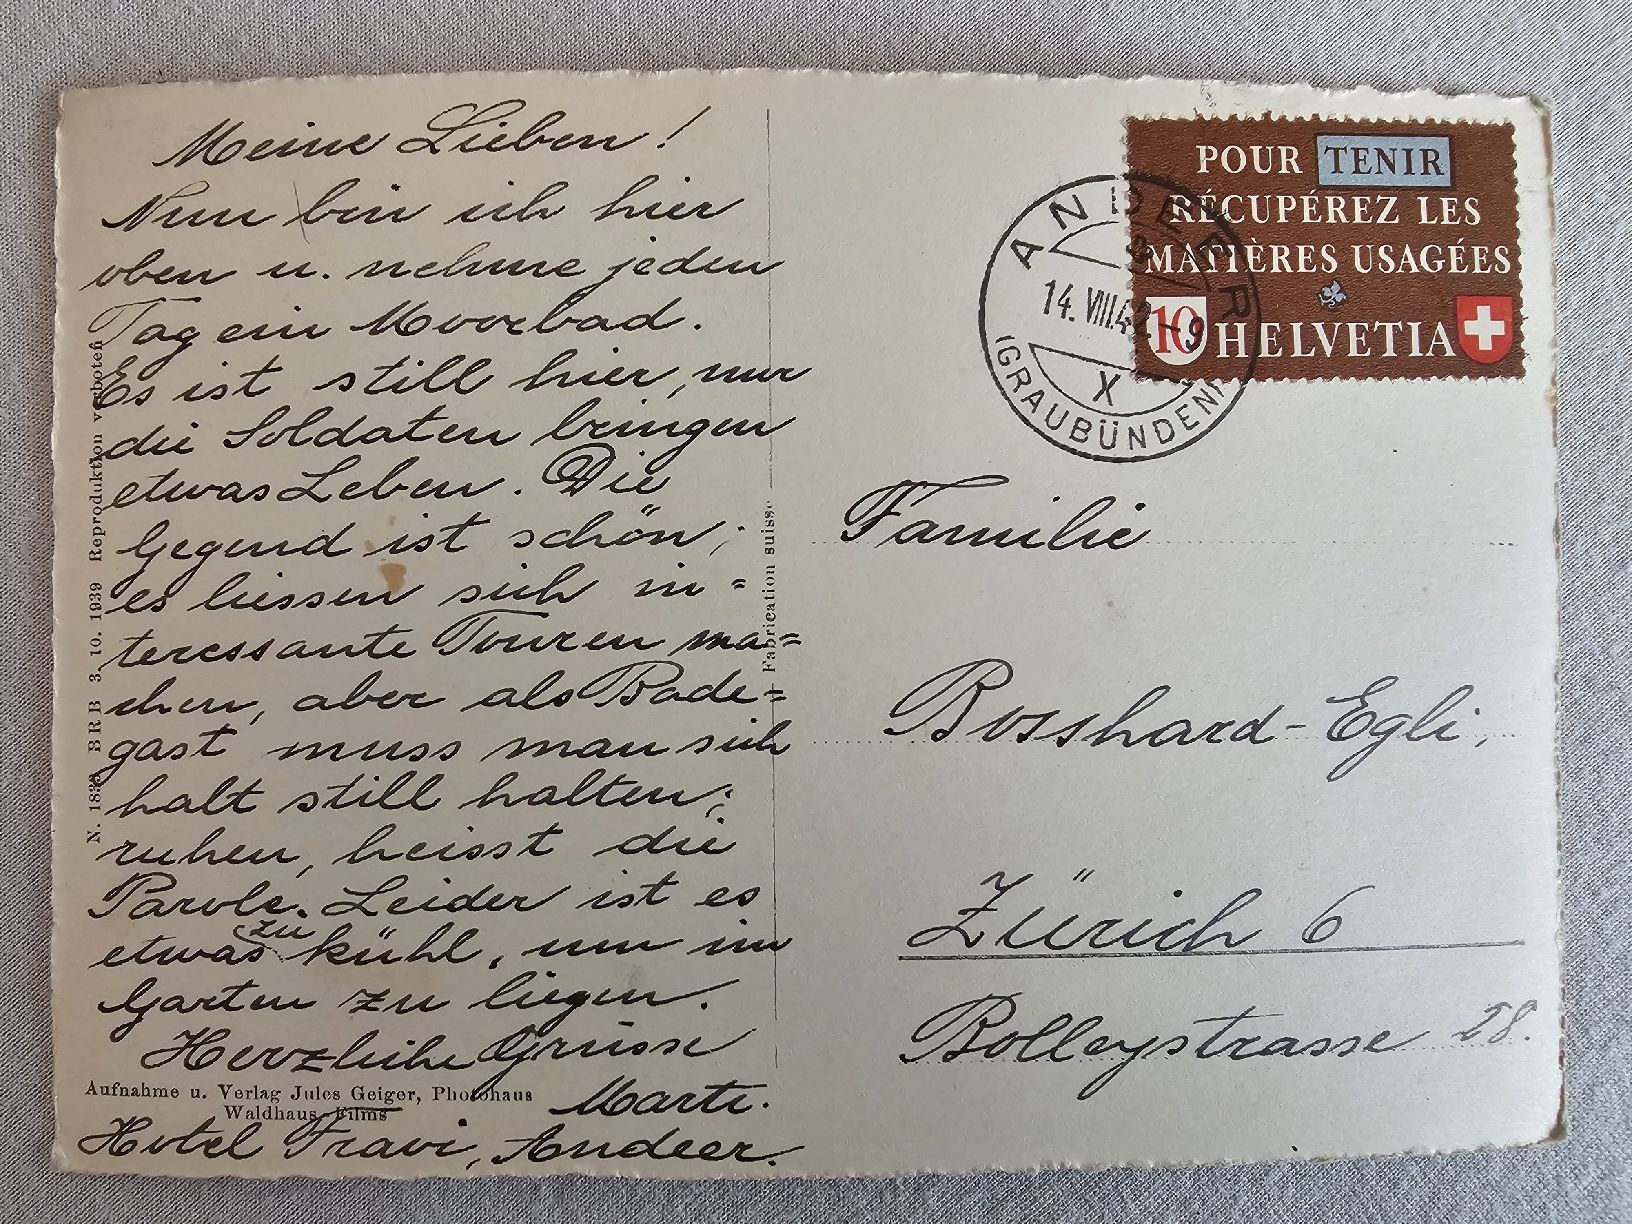 Meine Lieben!
Nun bin ich hier
oben u. nehme jeden
Tag ein Moorbad.
Es ist still hier, nur
die Soldaten bringen
etwas Leben. Die
Gegend ist schön;
es liessen sich in=
teressante Touren ma=
chen, aber als Bade=
gast muss man sich
halt still halten;
ruhen, heisst die
Parole. Leider ist es
zu
etwas kühl, um im
Garten zu liegen.
Herzliche Grüsse
Marti.
Hotel Fravi, Andeer.
Aufnahme u. Verlag Jules Geiger, Photohaus
Waldhaus-Flims
BRB 3. 10. 1939 Reproduktion verboten
Fabrication suisse
POUR TENIR
RÉCUPÉREZ LES
MATIÈRES USAGÉES
10 HELVETIA
ANDEER
14. VIII. 42 - 9
X
(GRAUBÜNDEN)
Familie
Bosshard-Egli,
Zürich 6
Bolleystrasse 28.